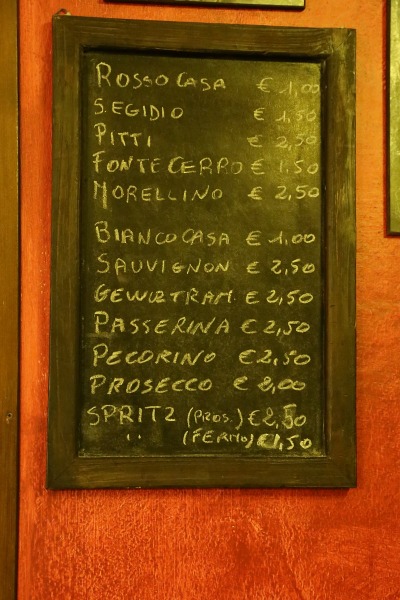 ROSSO CASA € 1,00
S.EGIDIO € 1,50
PITTI € 2,50
FONTECERRO € 1,50
MORELLINO € 2,50
BIANCO CASA € 1,00
SAUVIGNON € 2,50
GEWÜZTRAM. € 2,50
PASSERINA € 2,50
PECORINO € 2,50
PROSECCO € 2,00
SPRITZ (PROS.) € 2,50
" (FERMO) € 1,50